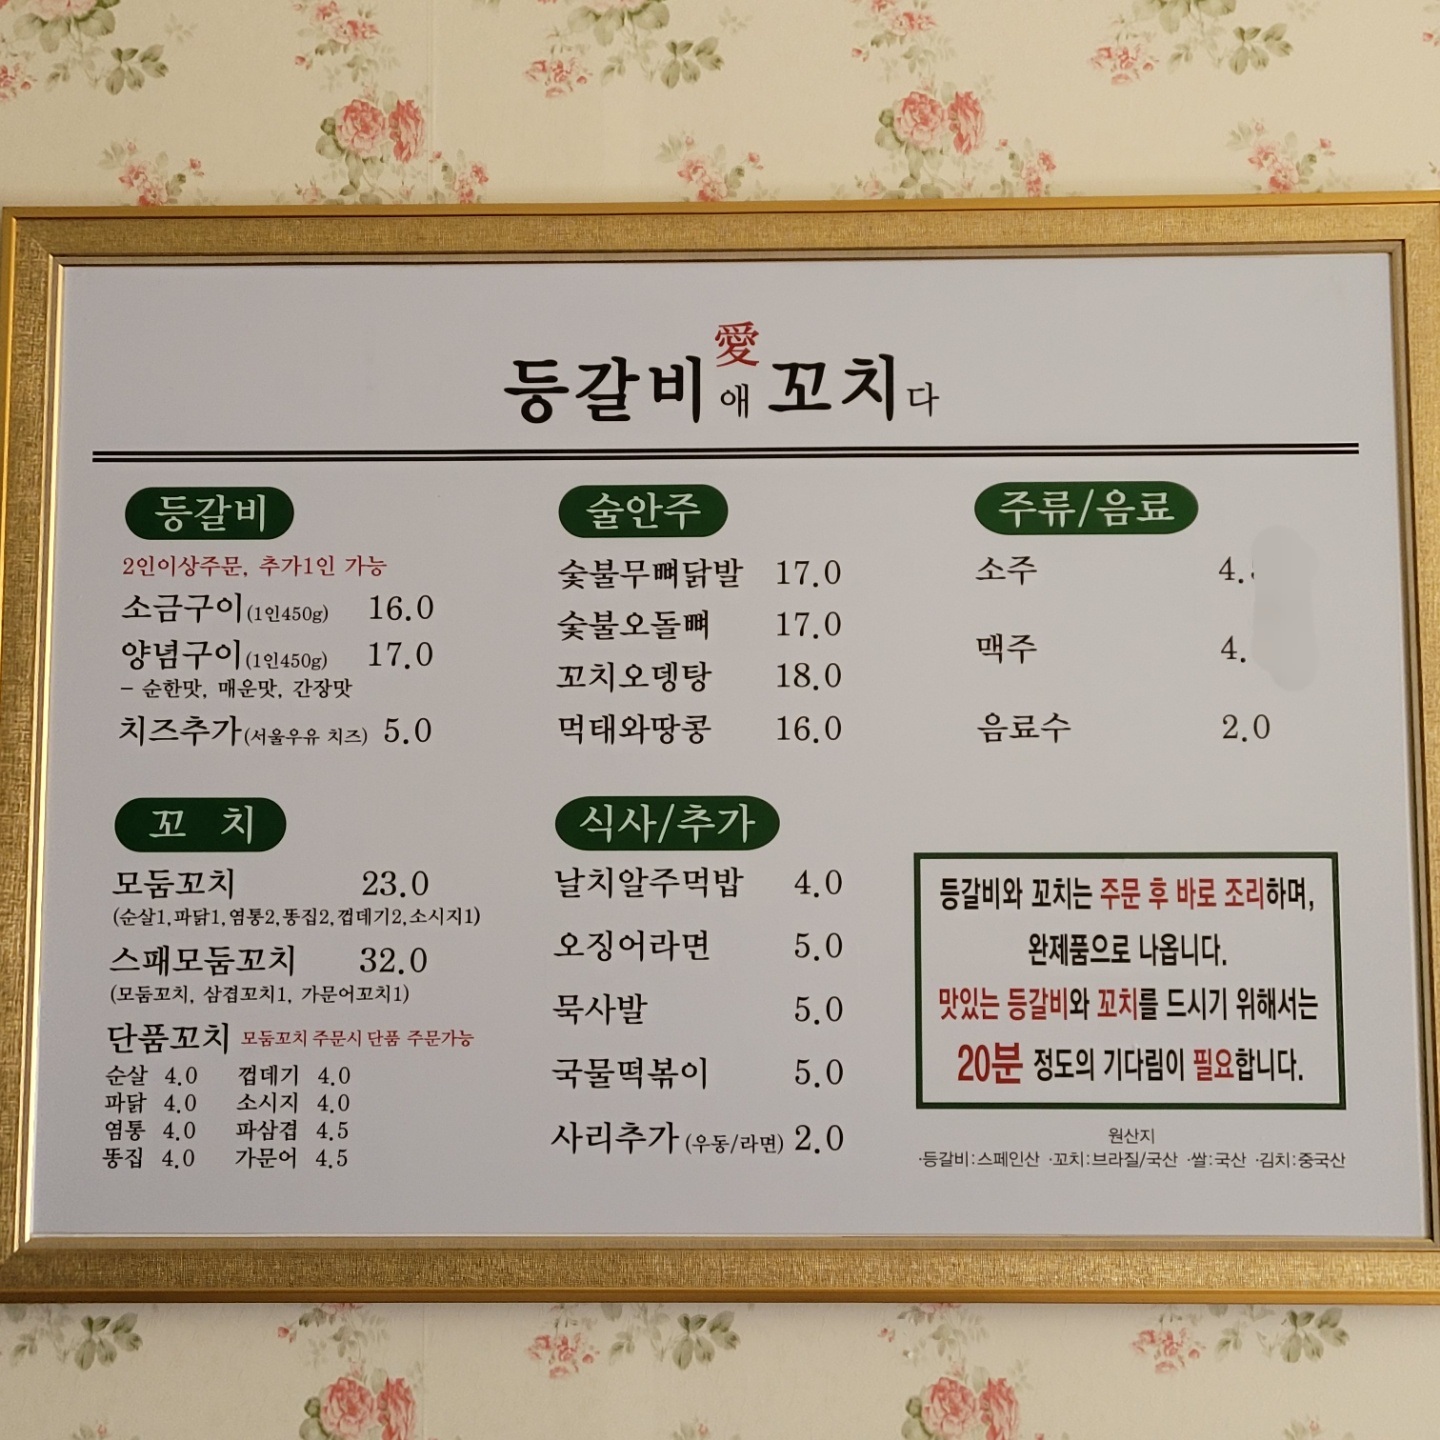 愛
등갈비애꼬치다
등갈비
2인이상주문, 추가1인 가능
소금구이(1인450g) 16.0
양념구이(1인450g) 17.0
- 순한맛, 매운맛, 간장맛
치즈추가(서울우유 치즈) 5.0
꼬 치
모둠꼬치 23.0
(순살1,파닭1,염통2,똥집2,껍데기2,소시지1)
스패모둠꼬치 32.0
(모둠꼬치, 삼겹꼬치1, 가문어꼬치1)
단품꼬치 모둠꼬치 주문시 단품 주문가능
순살 4.0 껍데기 4.0
파닭 4.0 소시지 4.0
염통 4.0 파삼겹 4.5
똥집 4.0 가문어 4.5
술안주
숯불무뼈닭발 17.0
숯불오돌뼈 17.0
꼬치오뎅탕 18.0
먹태와땅콩 16.0
식사/추가
날치알주먹밥 4.0
오징어라면 5.0
묵사발 5.0
국물떡볶이 5.0
사리추가(우동/라면) 2.0
주류/음료
소주 4.
맥주 4.
음료수 2.0
등갈비와 꼬치는 주문 후 바로 조리하며,
완제품으로 나옵니다.
맛있는 등갈비와 꼬치를 드시기 위해서는
20분 정도의 기다림이 필요합니다.
원산지
·등갈비:스페인산 ·꼬치:브라질/국산 ·쌀:국산 ·김치:중국산